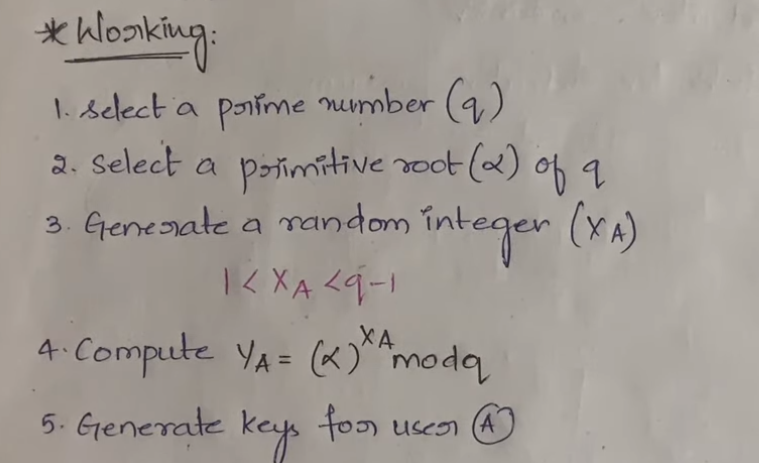 * Working:
1. Select a prime number (q)
2. Select a primitive root (α) of q
3. Generate a random integer (XA)
1 < XA < q-1
4. Compute YA = (α)^XA mod q
5. Generate keys for user Ⓐ